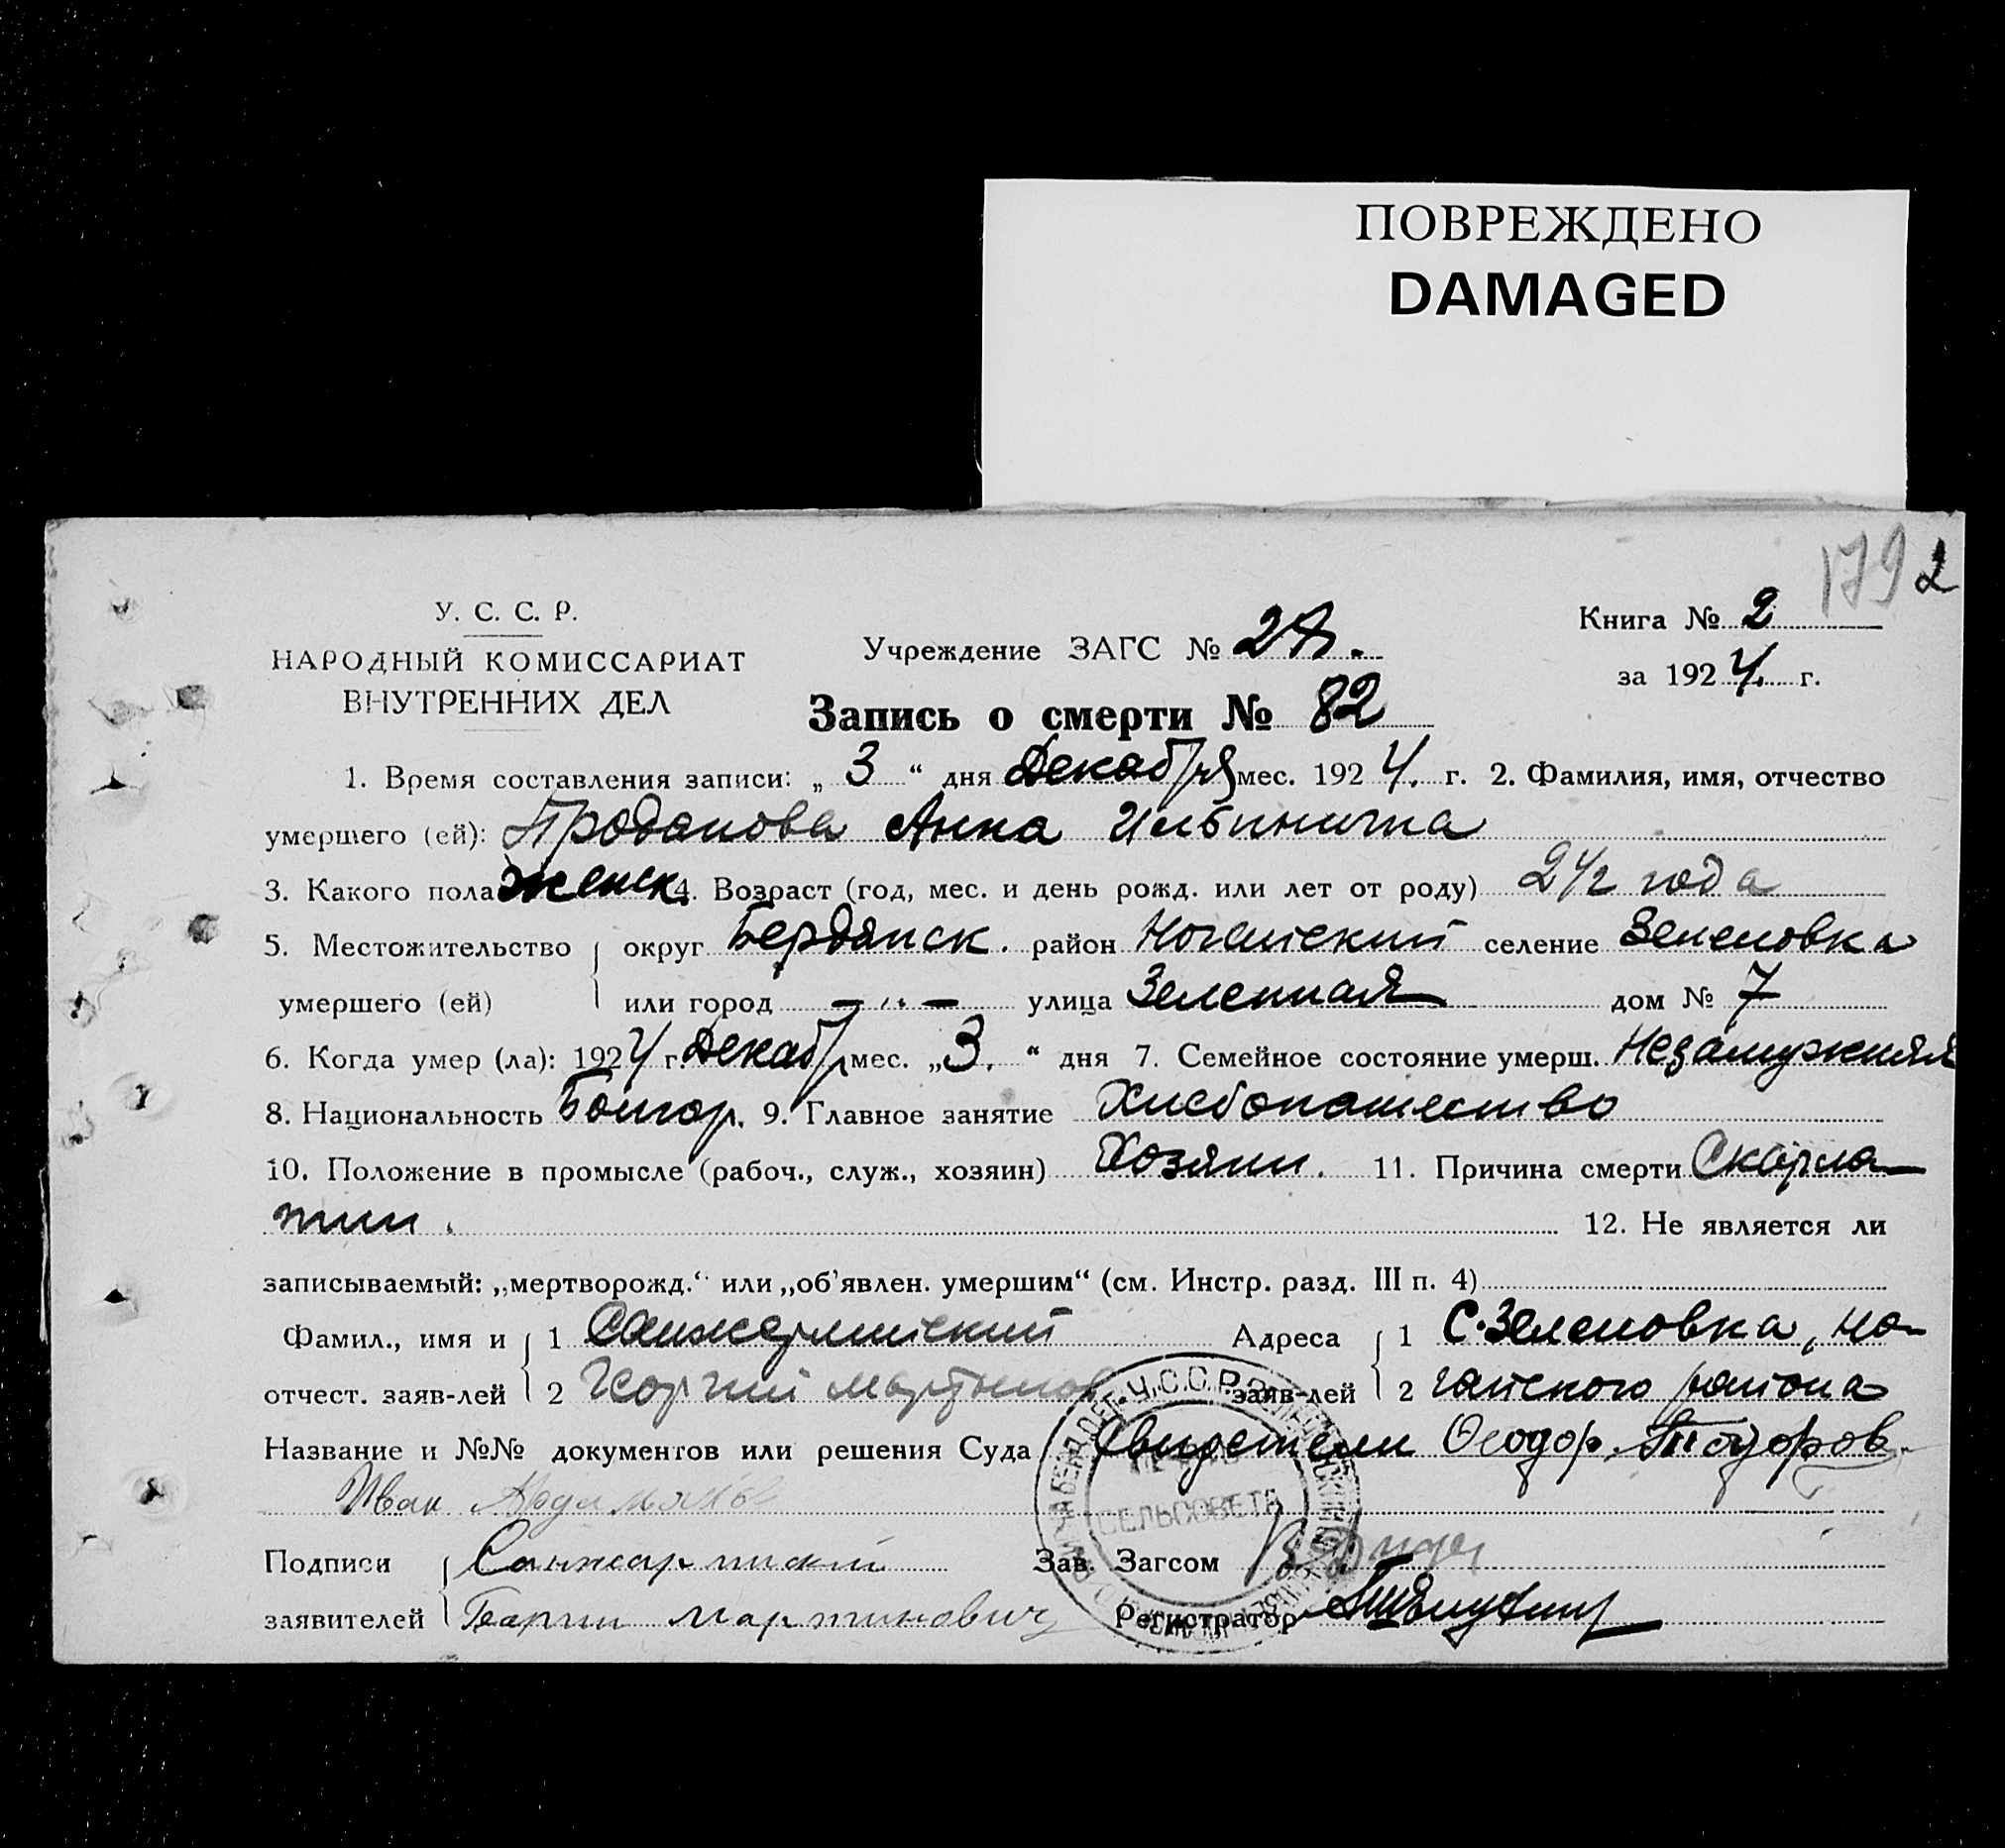 ПОВРЕЖДЕНО
DAMAGED
1792
У. С. С. Р.
НАРОДНЫЙ КОМИССАРИАТ
ВНУТРЕННИХ ДЕЛ
Учреждение ЗАГС №
Книга № 2
за 1924. г.
Запись о смерти № 82
1. Время составления записи: „ 3 “ дня Декабря мес. 1924. г. 2. Фамилия, имя, отчество
умершего (ей): Проданова Анна Ильинична
3. Какого пола Женск. 4. Возраст (год, мес. и день рожд. или лет от роду) 2 1/2 года
5. Местожительство округ Бердянск. район Ногайский селение Зеленовка
умершего (ей) или город — „ — улица Зеленная дом № 7
6. Когда умер (ла): 1924 г. Декабр мес. „ 3. “ дня 7. Семейное состояние умерш. Незамужняя
8. Национальность Болгар. 9. Главное занятие Хлебопашество
10. Положение в промысле (рабоч., служ., хозяин) Хозяин. 11. Причина смерти Скарла-
тин.
12. Не является ли
записываемый: „мертворожд.“ или „об'явлен. умершим“ (см. Инстр. разд. III п. 4)
Фамил., имя и 1 Адреса 1 С. Зеленовка, но-
отчест. заяв-лей 2 Георгий Мартынов заяв-лей 2 гайского района
Название и №№ документов или решения Суда Свидетели Феодор. Тодоров.
Иван
СЕЛЬСОВЕТА
Подписи Зав. Загсом
заявителей Мартинович Регистратор